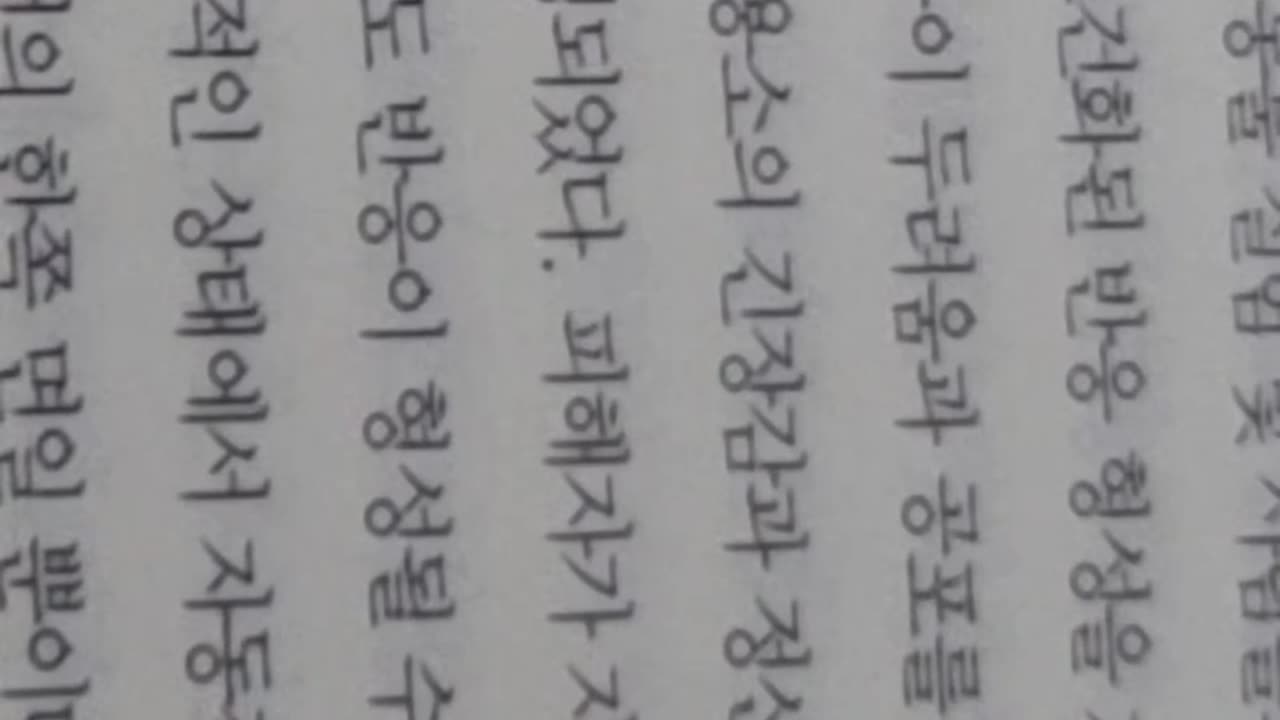 실험 및 사람을
건화된 반응 형성을
이 두려움과 공포를
용소의 긴장감과 정신
되었다. 피해자가
도 반응이 형성될 수
적인 상태에서 자동
의 한쪽 면일 뿐이